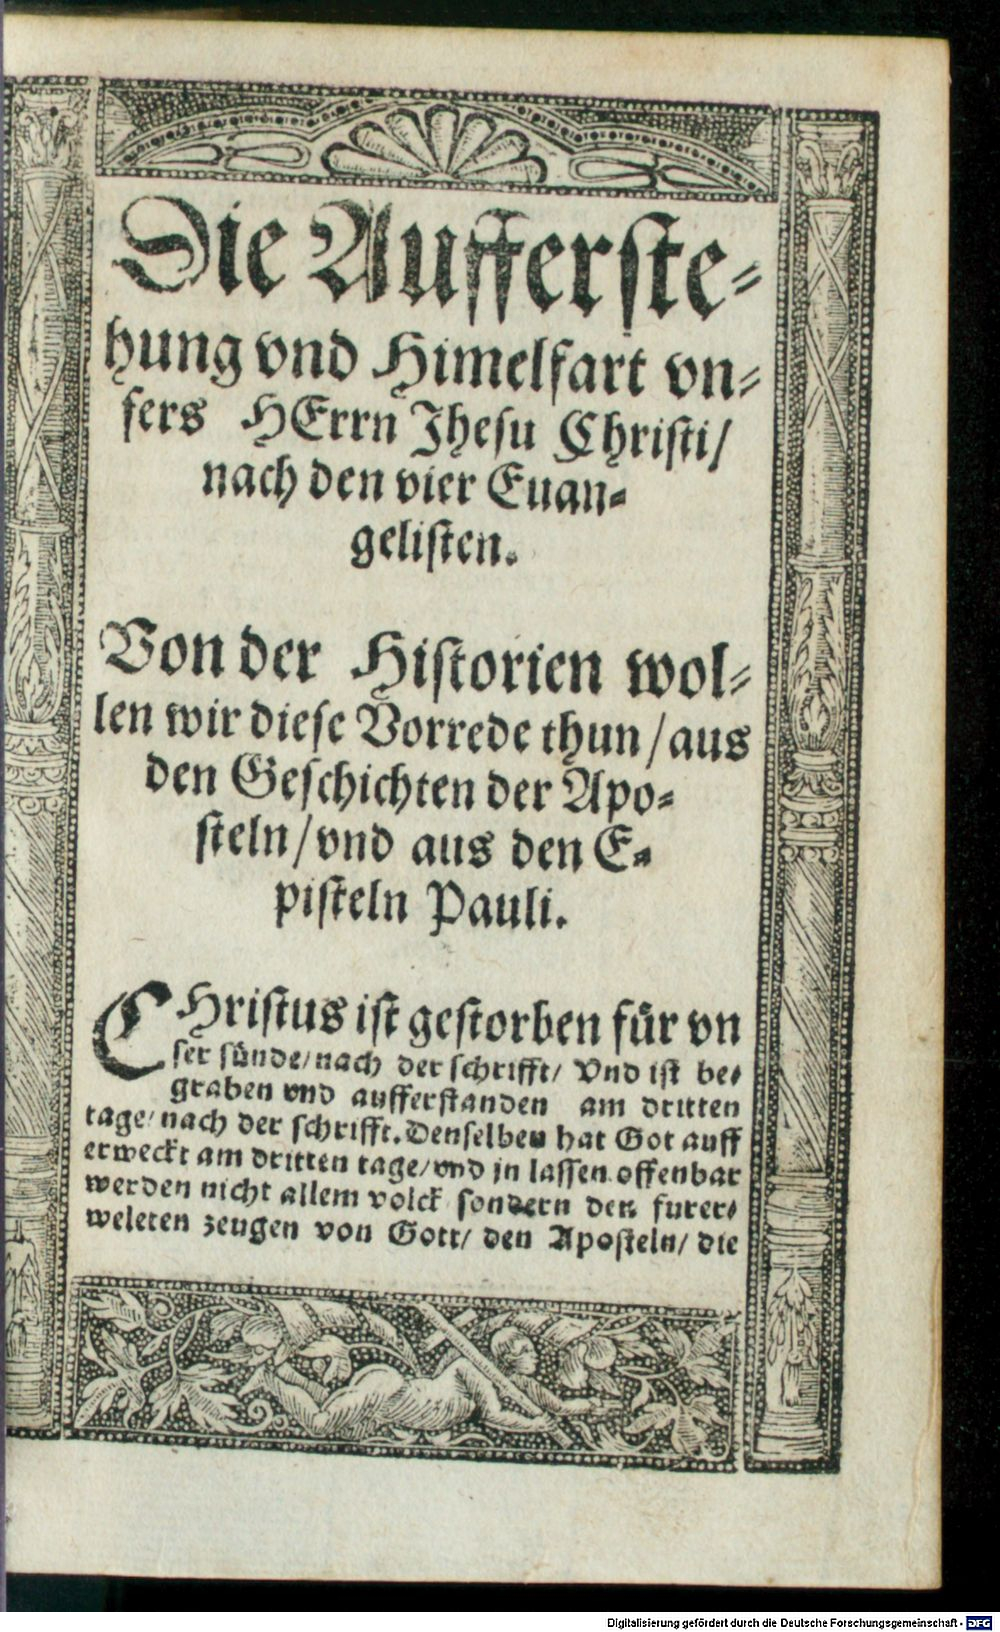 Die Aufferste-
hung vnd Himelfart vn-
sers HErrn Jhesu Christi/
nach den vier Euan-
gelisten.
Von der Historien wol-
len wir diese Vorrede thun/aus
den Geschichten der Apo-
steln/vnd aus den E-
pisteln Pauli.
CHristus ist gestorben für vn
ser sünde/nach der schrifft/ Vnd ist be-
graben vnd aufferstanden am dritten
tage/nach der schrifft. Denselben hat Got auff
erweckt am dritten tage/vnd jn lassen offenbar
werden nicht allem volck sondern den furer-
weleten zeugen von Gott/ den Aposteln/ die
Digitalisierung gefördert durch die Deutsche Forschungsgemeinschaft - DFG